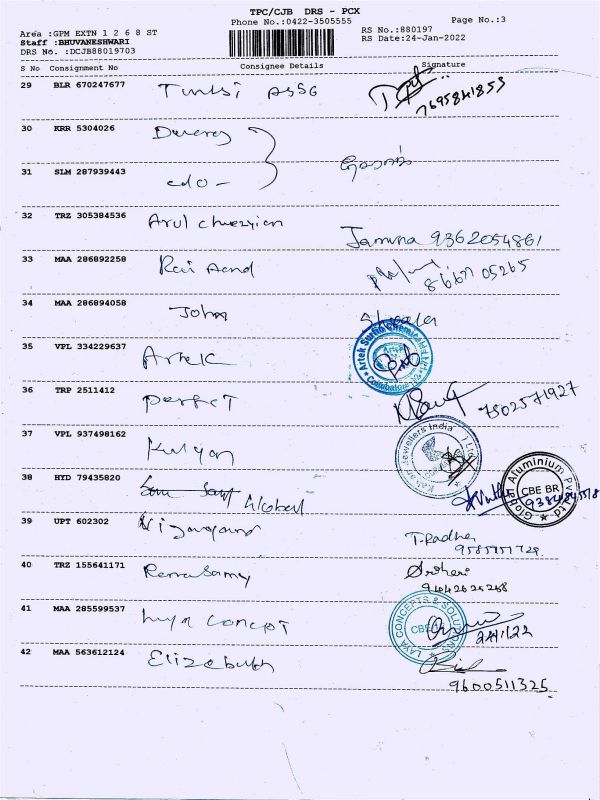 TPC/CJB DRS - PCX
Phone No.:0422-3505555
Page No.:3
Area :GPM EXTN 1 2 6 8 ST
RS No.:880197
Staff :BHUVANESHWARI
RS Date:24-Jan-2022
DRS No. :DCJB88019703
S No Consignment No Consignee Details Signature
29 BLR 670247677 Tulsi
7695841853
30 KRR 5304026
31 SLM 287939443 -do-
32 TRZ 305384536 Arul
Jamuna 9362054861
33 MAA 286892258 Ravi Anand
86676 05265
34 MAA 286894058 John
35 VPL 334229637 Artek
Coimbatore
36 TRP 2511412 Perfect
7502571927
37 VPL 937498162 Kalyan
Kalyan Jewellers India Ltd
38 HYD 79435820
Global Aluminium Pvt Ltd
CBE BR
39 UPT 602302
T. Radha
40 TRZ 155641171 Ramasamy
Srihari
41 MAA 285599537 Laya Concept
LAYA CONCEPTS & SOLUTIONS
CBE
42 MAA 563612124 Elizabeth
9600511325